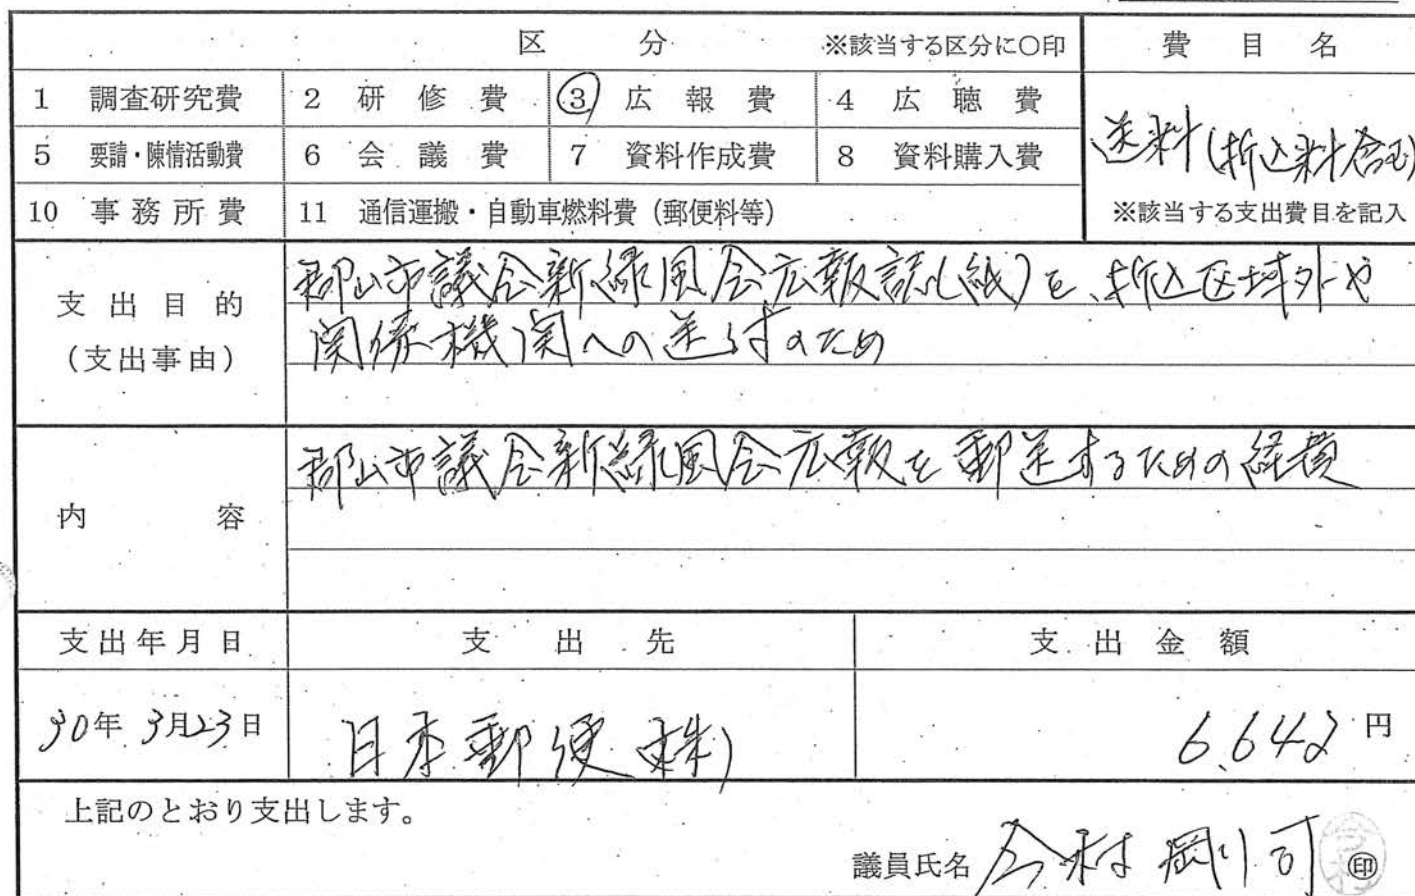 区 分 ※該当する区分に〇印 費 目 名
1 調査研究費 2 研 修 費 ③ 広 報 費 4 広 聴 費
5 要請・陳情活動費 6 会 議 費 7 資料作成費 8 資料購入費
送料(折込料含む)
10 事 務 所 費 11 通信運搬・自動車燃料費(郵便料等) ※該当する支出費目を記入
支 出 目 的
(支出事由)
郡山市議会新緑風会広報誌(紙)を、折込区域外や
関係機関への送付のため
内 容
郡山市議会新緑風会広報を郵送するための経費
支出年月日 支 出 先 支 出 金 額
30年 3月23日 日本郵便(株) 6,642 円
上記のとおり支出します。
議員氏名 今村 剛司 ㊞